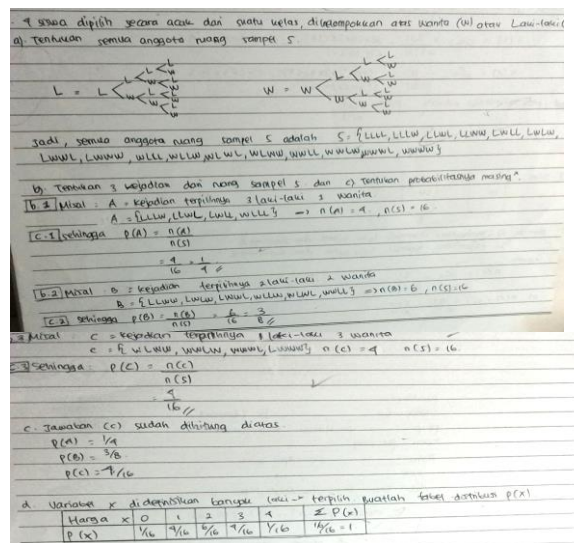 4 siswa dipilih secara acak dari suatu kelas, dikelompokkan atas wanita (W) atau Laki-laki (
a). Tentukan semua anggota ruang sampel S.
L = L L W L W L W L W L W L W L W
W = W L W L W L W L W L W L W L W
Jadi, semua anggota ruang sampel S adalah S = {LLLL, LLLW, LLWL, LLWW, LWLL, LWLW,
LWWL, LWWW, WLLL, WLLW, WLWL, WLWW, WWLL, WWLW, WWWL, WWWW}
b). Tentukan 3 kejadian dari ruang sampel S dan c) Tentukan probabilitasnya masing".
b.1 Misal : A = Kejadian terpilihnya 3 laki-laki 1 wanita
A = {LLLW, LLWL, LWLL, WLLL} => n(A) = 4, n(S) = 16
C.1 Sehingga P(A) = n(A)
n(S)
= 4 = 1
16 4 //
b.2 Misal : B = kejadian terpilihnya 2 laki-laki 2 wanita
B = {LLWW, LWLW, LWWL, WLLW, WLWL, WWLL} => n(B) = 6, n(S) = 16
C.2 Sehingga P(B) = n(B) = 6 = 3
n(S) 16 8 //
Misal : C = Kejadian terpilihnya 1 laki-laki 3 wanita
C = {WLWW, WWLW, WWWL, LWWW} n(C) = 4 n(S) = 16
Sehingga : P(C) = n(C)
n(S)
= 4
16 //
c. Jawaban (c) sudah dihitung diatas.
P(A) = 1/4
P(B) = 3/8
P(C) = 4/16
d. Variabel x didefinisikan banyak laki-" terpilih buatlah tabel distribusi P(x)
Harga x 0 1 2 3 4 Σ P(x)
P(x) 1/16 4/16 6/16 4/16 1/16 16/16 = 1